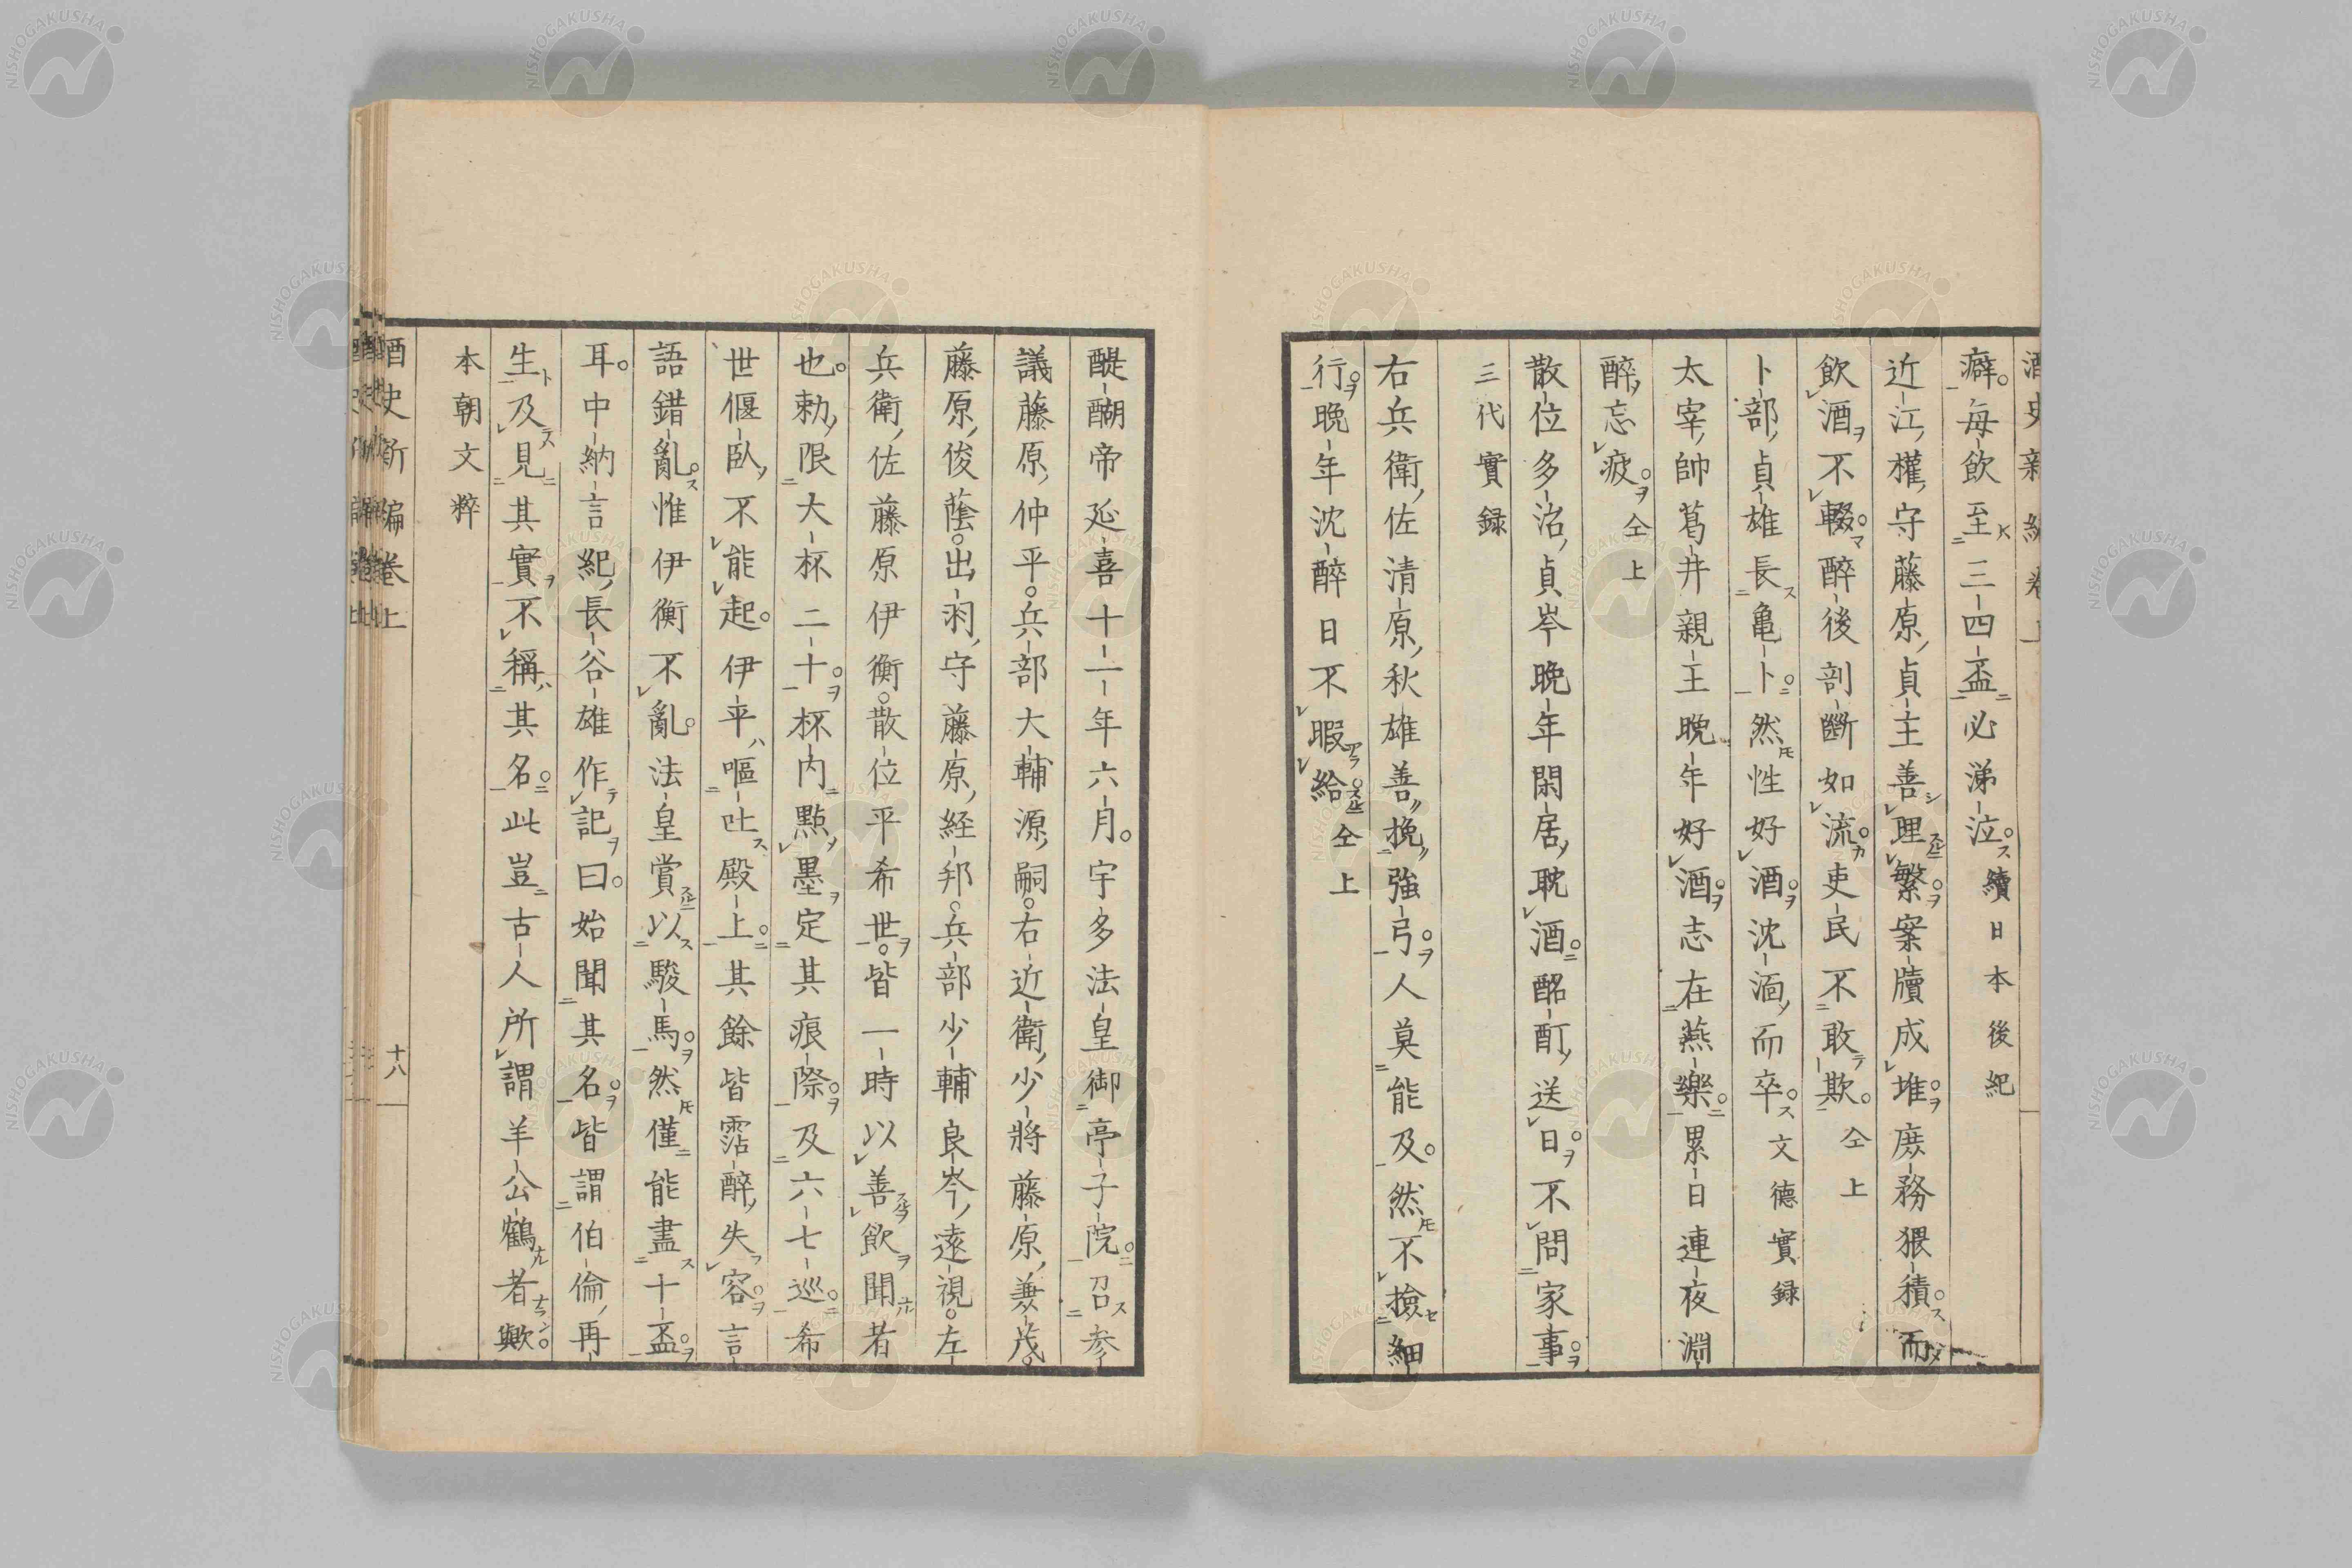 酒史新編卷上
癖。每飲至三四盃必涕泣。續日本後紀
近江權守藤原貞主善理繁案牘成堆。庶務猥積。而
飲酒不輟。醉後剖斷如流。吏民不敢欺。仝上
卜部貞雄長亀卜。然性好酒。沈湎而卒。文德實録
太宰帥葛井親王晚年好酒。志在燕樂。累日連夜淵
醉忘疲。仝上
散位多治貞岑晚年閑居耽酒。酩酊送日。不問家事。
三代實録
右兵衛佐清原秋雄善挽強弓。人莫能及。然不撿細
行。晚年沈醉日不暇給。仝上
醍醐帝延喜十一年六月。宇多法皇御亭子院。召参
議藤原仲平。兵部大輔源嗣。右近衛少將藤原兼茂。
藤原俊蔭。出羽守藤原経邦。兵部少輔良岑遠視。左
兵衛佐藤原伊衡。散位平希世。皆一時以善飲聞者
也。勅限大杯二十。杯内點墨定其痕際。及六七巡。希
世偃臥不能起。伊平嘔吐殿上。其餘皆霑醉失容。言
語錯亂。惟伊衡不亂。法皇賞以駿馬。然僅能盡十盃。
耳。中納言紀長谷雄作記曰。始聞其名。皆謂伯倫再
生及見其實不稱其名。此豈古人所謂羊公鶴者歟。
本朝文粹
酒史新編卷上
十八